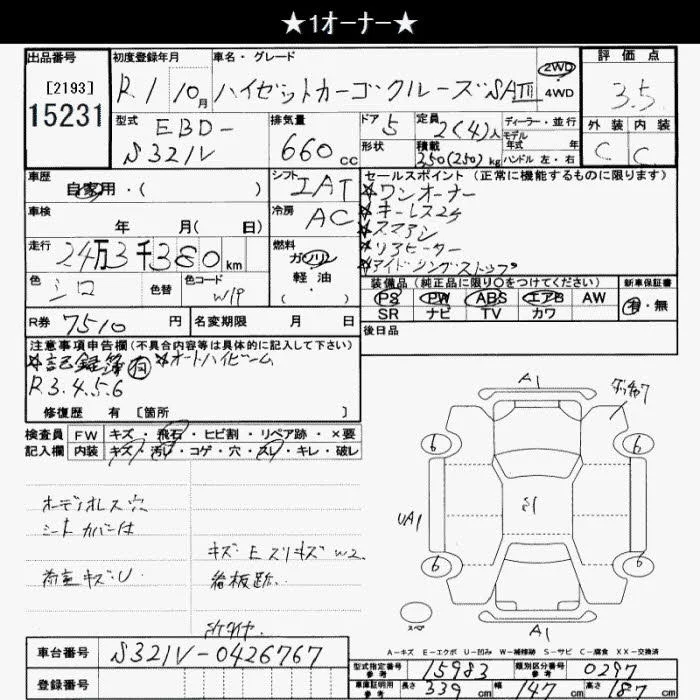 ★1オーナー★
出品番号
[2193]
15231
初度登録年月
R.1 10月
車名・グレード
ハイゼットカーゴクルーズSAⅢ
2WD
4WD
評価点
3.5
外装 内装
C C
型式
EBD-
S321V
排気量
660 cc
ドア 5
形状
定員 2(4)人
積載 350(250)kg
ディーラー・並行
モデル
年式 年
ハンドル 左・右
車歴
自家用・( )
シフト IAT
車検
年 月( 日)
冷房 AC
走行
24万3千380km
燃料
ガソリン
軽油
・( )
色 シロ
色替
色コード W19
セールスポイント(正常に機能するものに限ります)
☆ワンオーナー
☆キーレス2ケ
☆スマアシ
☆リアヒーター
☆アイドリングストップ
装備品(純正品に限り〇をつけてください)
PS PW ABS エアB AW
SR ナビ TV カワ
新車保証書
有・無
R券 7510円
名変期限 月 日
後日品
注意事項申告欄(不具合内容等は具体的に記入して下さい)
☆記録簿有 ☆オートハイビーム
R.3.4.5.6
修復歴 有 [箇所 ]
検査員
記入欄
FW キズ・飛石・ヒビ割・リペア跡・×要
内装 キズ・汚レ・コゲ・穴・スレ・キレ・破レ
オーディオレス穴
シートカバー付
荷室キズ・U
キズ・E スリキズ W2
看板跡
A1
6 6
UA1
S1
6 6
スペア
A1
A-キズ E-エクボ U-凹み W-補修跡 S-サビ C-腐食 XX-交換済
車台番号 S321V-0426767
登録番号
型式指定番号
参考
15983
類別区分番号
参考
0297
車庫証明用
参考
長さ 339cm 幅 147cm 高さ 187cm